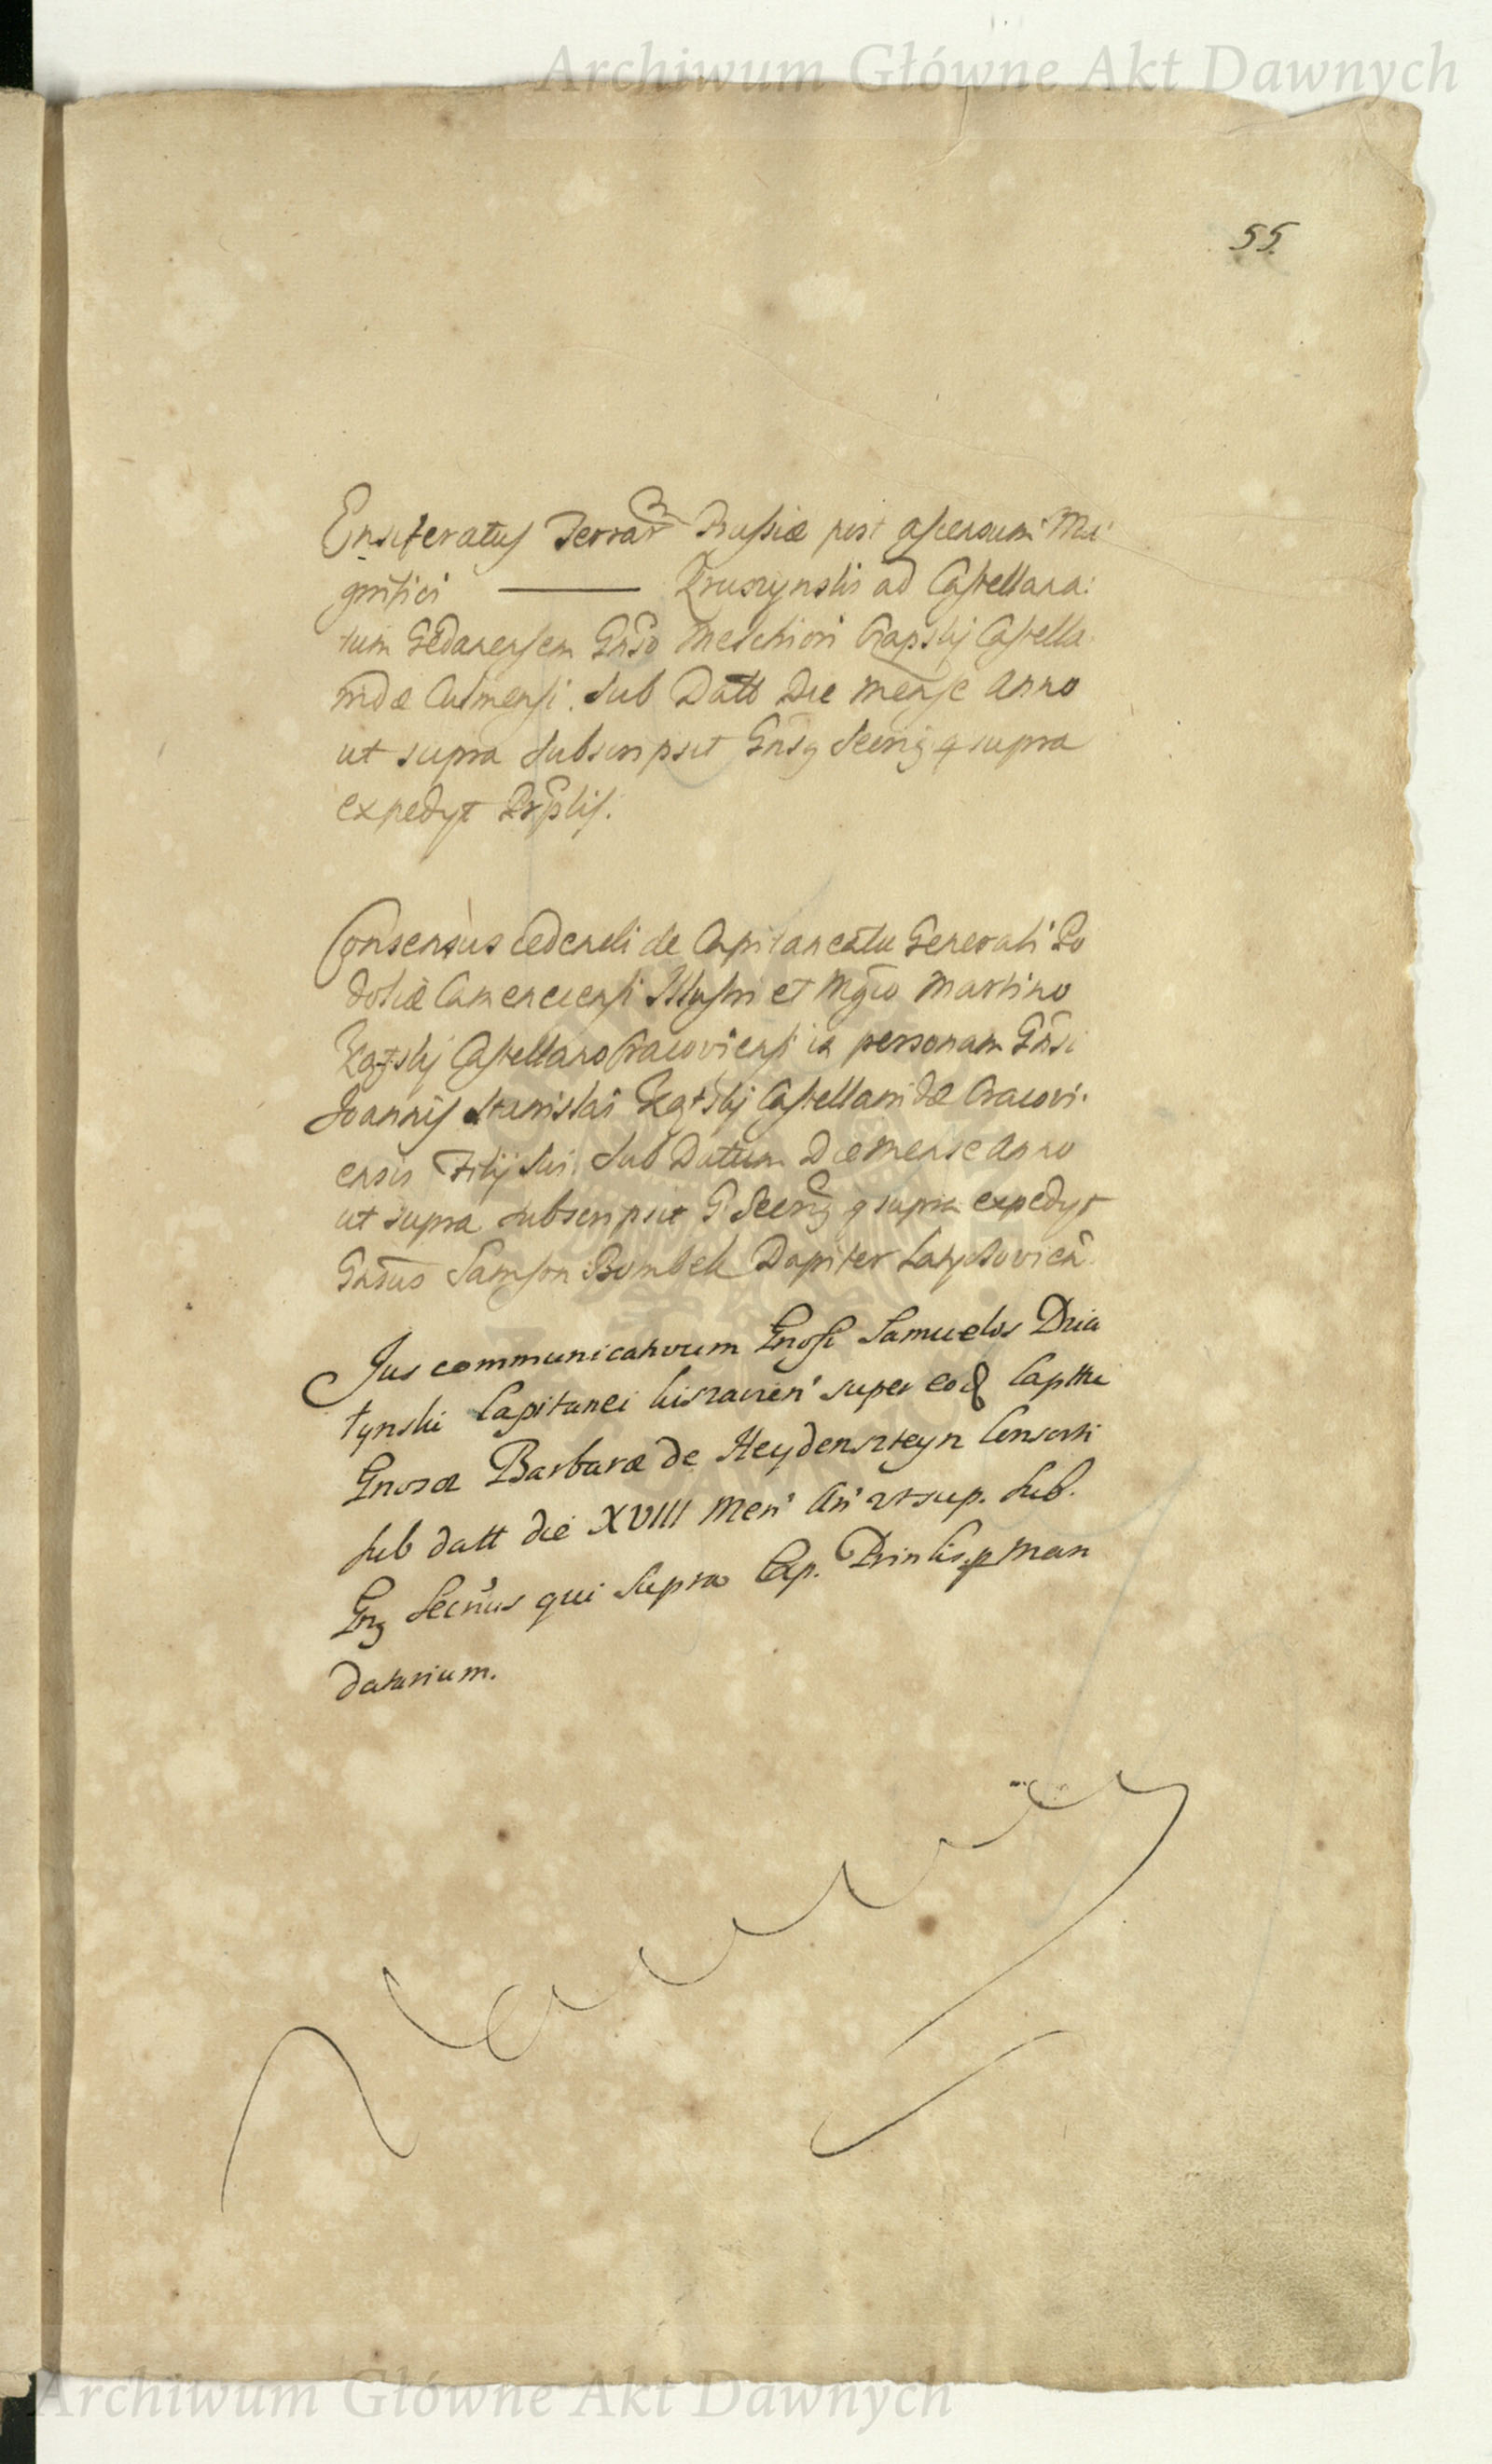 Archiwum Główne Akt Dawnych
55.
Ensiferatus Terrar Prussiæ post ascensum Ma
gnifici ——— Kruszynski ad Castellana:
tum Gedanensem Gnso Melchiori Czapskij Castella
nidæ Culmensi. Sub Datt Die Mense Anno
ut supra Subscripsit Gnsq q supra
expedyt
Consensus Cedendi de Capitaneatu Generali Po
doliæ Camenecensi Illustri et Mgco Martino
Kątskij Castellano Cracoviensi in personam Gnsi
Joannis Stanislai Kątskij Castellanidæ Cracovi.
ensis Filij Sui. Sub Datum Die Mense Anno
ut supra subscripsit G q supra expedyt
Gnsus Samson Bombek Dapifer Latyczovien.
Jus communicativum Gnosi Samuelis Dzia
tynski Capitanei kiszavien super eod Capttu
Gnosæ Barbaræ De Heydensteyn Consorti
Sub datt die XVIII Men An ut sup. Sub.
Gnq Secrius qui Supra Exp. Prinlis p Man
datarium.
Archiwum Główne Akt Dawnych